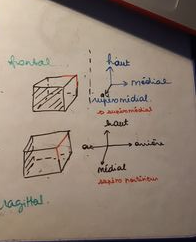 frontal
haut
médial
supéromédial
→ supéromédial
haut
av
arrière
médial
supéro postérieur
sagittal